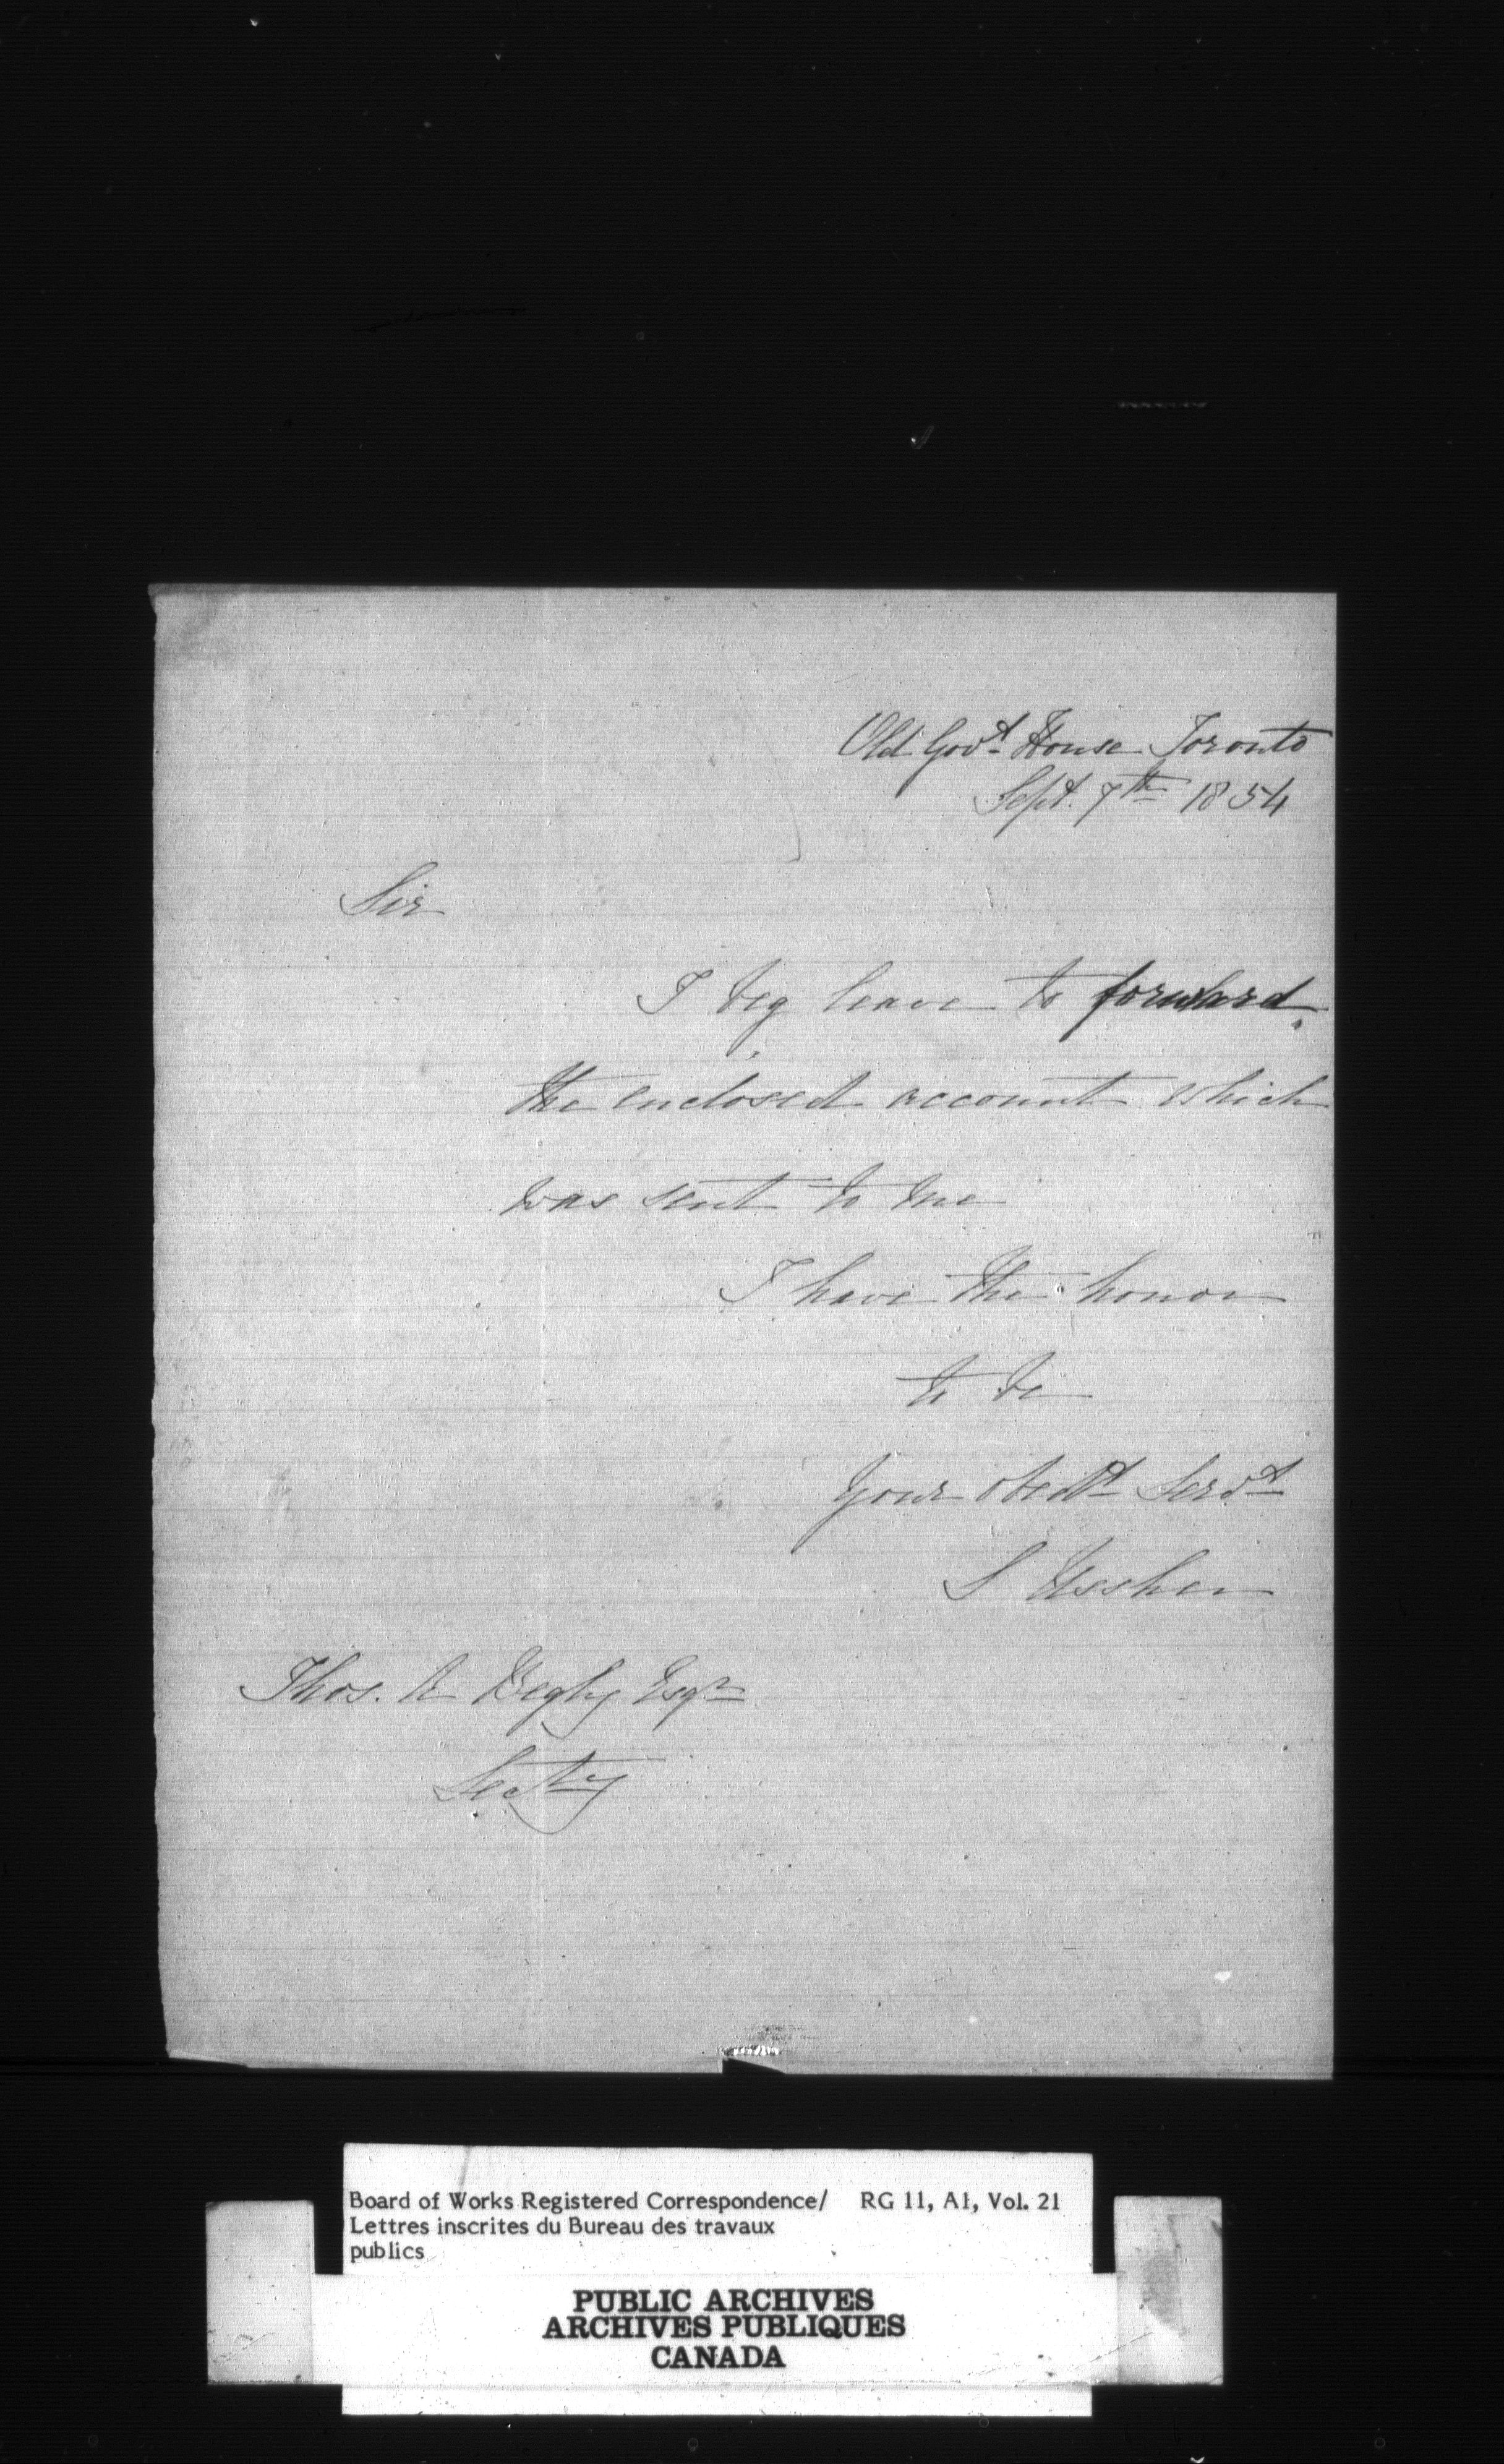 Old Govt House Toronto
Sept. 7th 1854
Sir
I beg leave to forward
the enclosed account which
was sent to me
I have the honor
to be
Your obedt Servt
S Ussher
Thos. A Begly Esqr
Secty
Board of Works Registered Correspondence/ RG 11, A1, Vol. 21
Lettres inscrites du Bureau des travaux
publics
PUBLIC ARCHIVES
ARCHIVES PUBLIQUES
CANADA